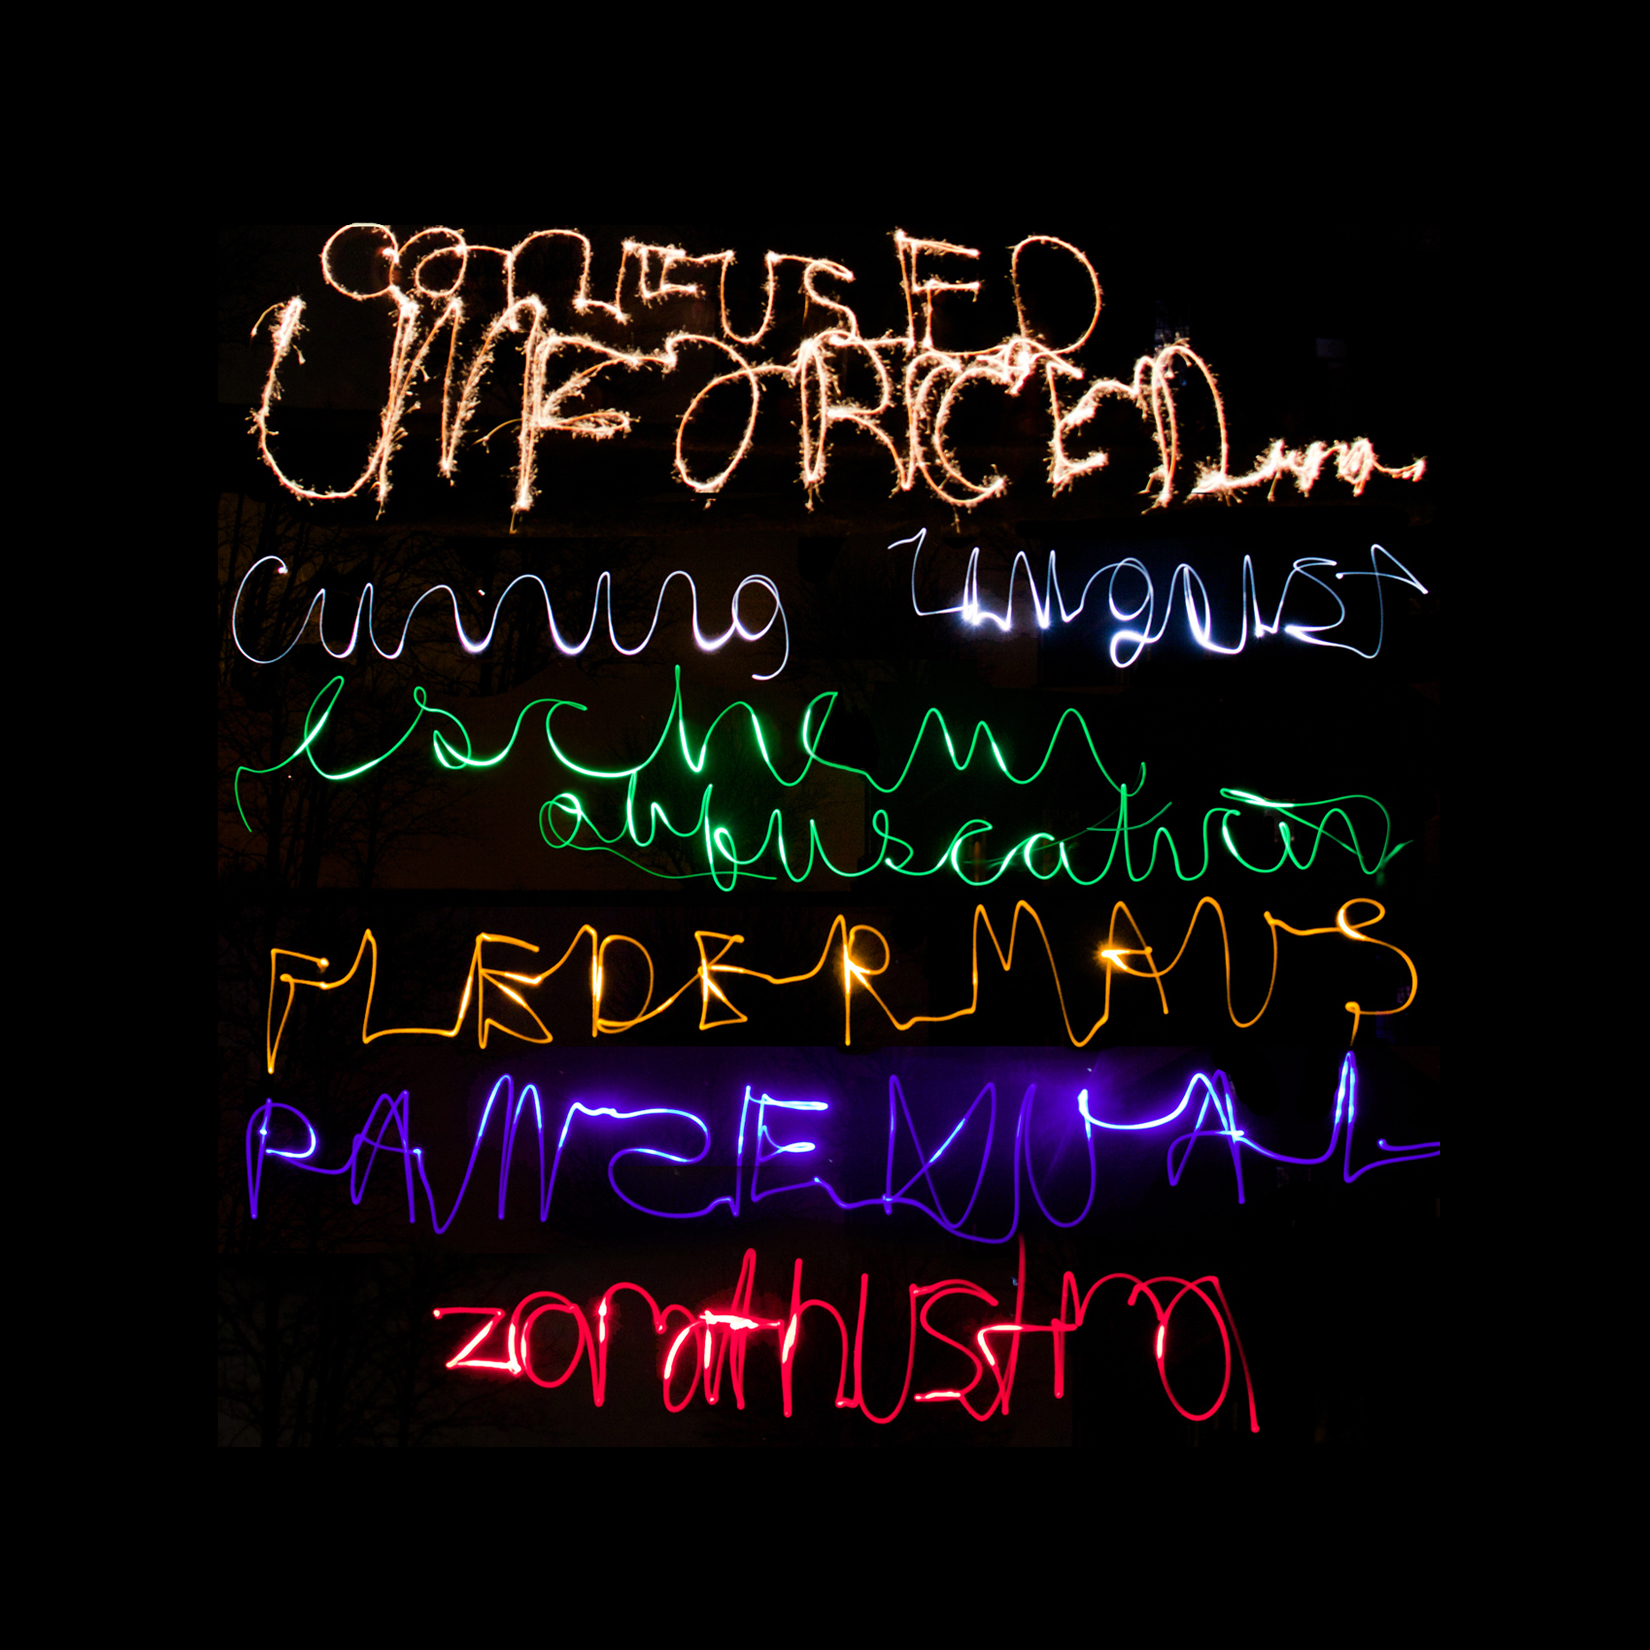 CONFUSED
UNFORCED
cunning linguist
eschew
obfuscation
FLEDERMAUS
PANSEXUAL
zarathustra